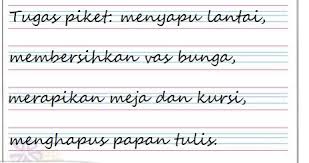 Tugas piket: menyapu lantai,
membersihkan vas bunga,
merapikan meja dan kursi,
menghapus papan tulis.